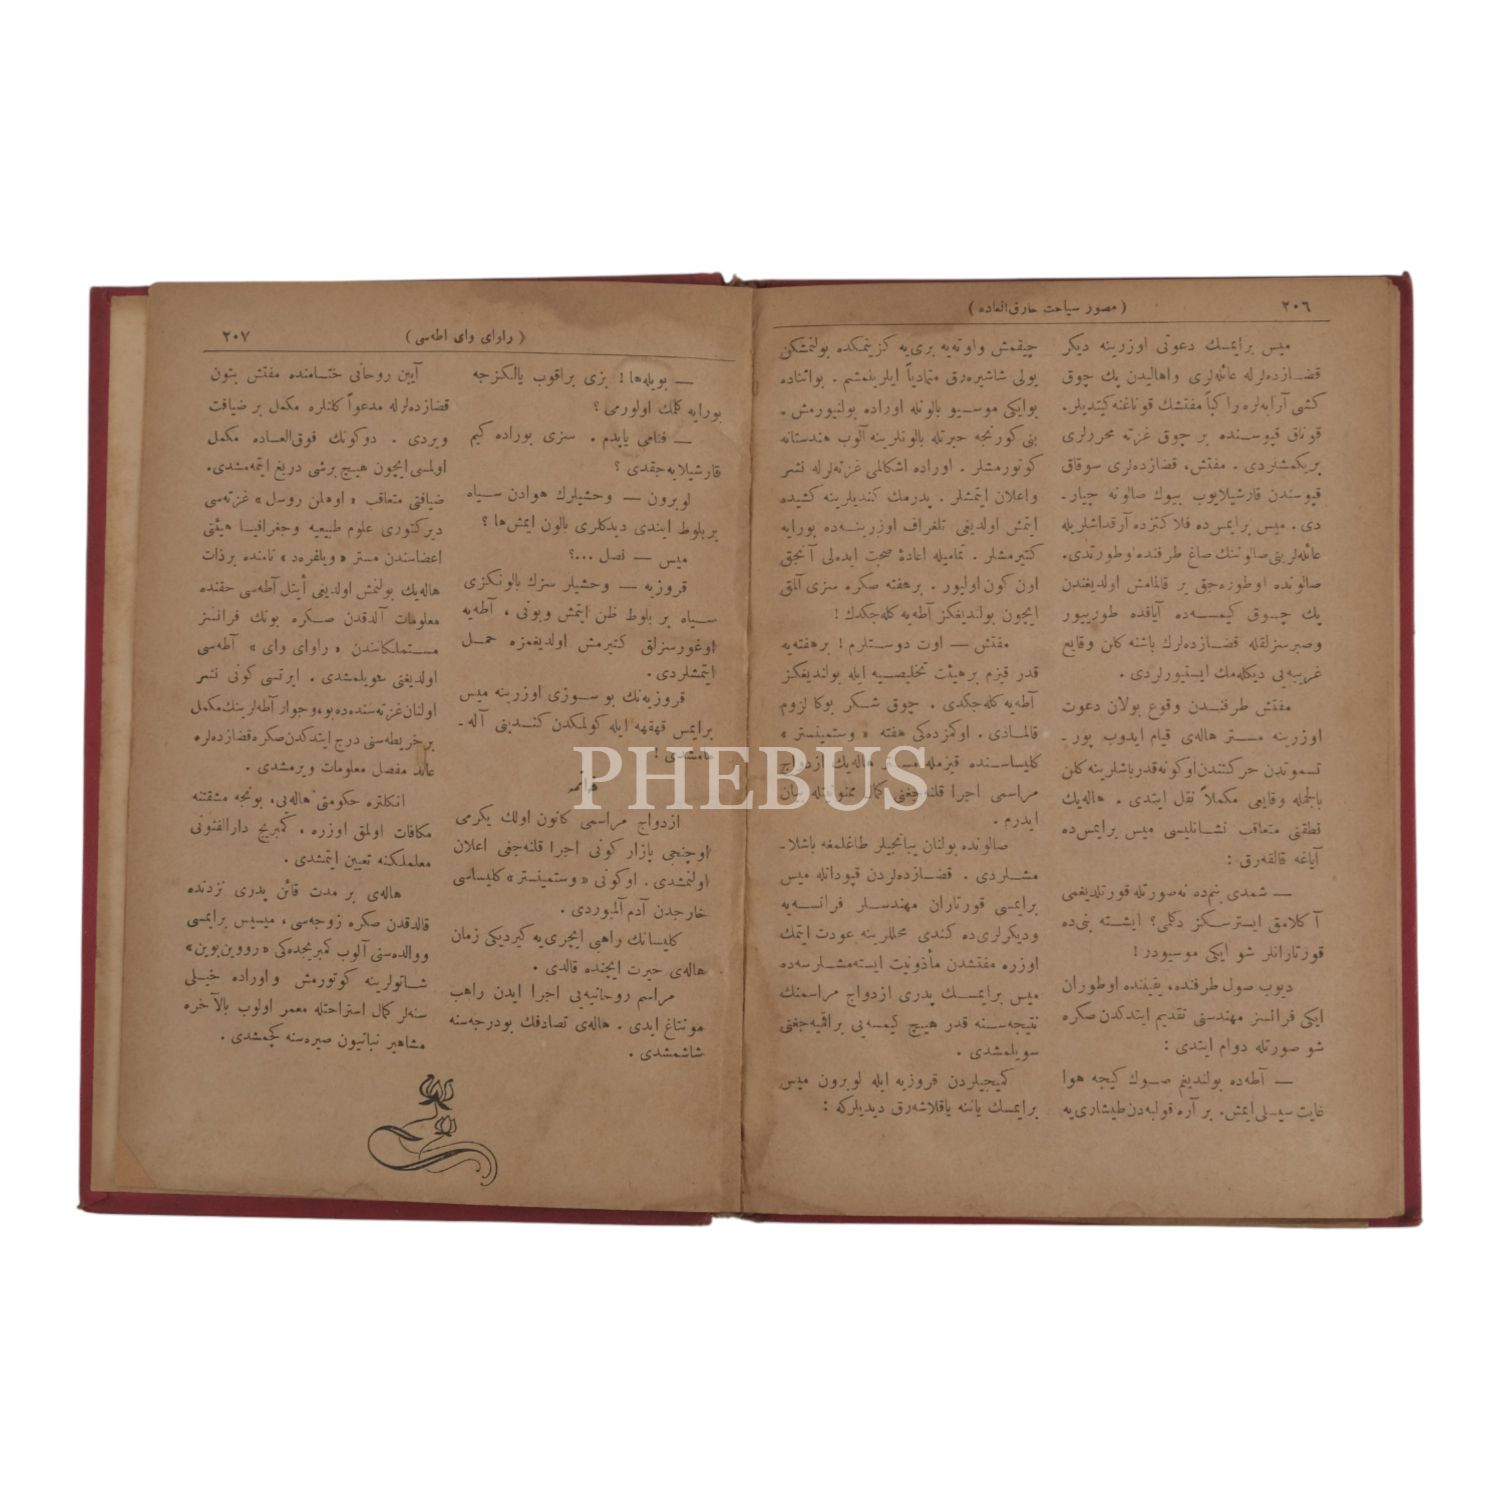 ٢٠٦
( مصور سیاحت خارق‌العاده )
میس برایمسك دعوتی اوزرینه دیكر
قضازده‌لرله عائله‌لری واهالیدن پك چوق
كشی آرابه‌لره راكباً مفتشك قوناغنه كیتدیلر.
قوناق قپوسنده بر چوق غزته محررلری
بریكمشلردی . مفتش، قضازده‌لری سوقاق
قپوسندن قارشیلایوب بیوك صالونه چیقار-
دی . میس برایمس‌ده فلاكتزده آرقداشلریله
عائله‌لرینی صالوننك صاغ طرفنده اوطورتدی.
صالونده اوطوره‌جق بر قالمامش اولدیغندن
پك چوق كیمسه‌ده آیاقده طوریبور
وصبرسزلقله قضازده‌لرك باشنه كلن وقایع
غریبه‌یی دیكله‌مك ایستیورلردی .
مفتش طرفندن وقوع بولان دعوت
اوزرینه مستر هاله‌ی قیام ایدوب پور-
تسموتدن حركتندن اوكونه‌قدر باشلرینه كلن
بالجمله وقایعی مكملاً نقل ایتدی . هاله‌یك
نطقنی متعاقب نشانلیسی میس برایمس‌ده
آیاغه قالقه‌رق :
— شمدی بنم‌ده نه‌صورتله قورتلدیغمی
آكلامق ایسترسكز دكلمی؟ ایشته بنی‌ده
قورتارانلر شو ایكی موسیودر !
دیوب صول طرفنده، یقیننده اوطوران
ایكی فرانسز مهندسنی تقدیم ایتدكدن صكره
شو صورتله دوام ایتدی :
— آطه‌ده بولندیغم صوك كیجه هوا
غایت سیسلی ایمش. بر آره قولبه‌دن طیشاری‌یه
چیقمش واوته‌یه بری‌یه كزینمكده بولنمشكن
یولی شاشیره‌رق متمادیاً ایلریلمشم . بواثناده
بوایكی موسیو بالونله اوراده بولنیورمش .
بنی كورنجه حیرتله بالونلرینه آلوب هندستانه
كوتورمشلر . اوراده اشكالمی غزته‌لرله نشر
واعلان ایتمشلر . پدرمك كندیلرینه كشیده
ایتمش اولدیغی تلغراف اوزرینه‌ده بورایه
كتیرمشلر . تمامیله اعادهٔ صحت ایده‌لی آنجق
اون كون اولیور . برهفته صكره سزی آلمق
ایچون بولندیغكز آطه‌یه كله‌جكدك !
مفتش — اوت دوستلرم ! برهفته‌یه
قدر قیزم برهیئت تخلیصیه ایله بولندیغكز
آطه‌یه كله‌جكدی . چوق شكر بوكا لزوم
قالمادی . اوكمزده‌كی هفته « وستمینستر »
كلیساسنده قیزمله مستر هاله‌یك ازدواج
مراسمی اجرا قلنه‌جغنی كمال ممنونیتله بیان
ایدرم .
صالونده بولنان یبانجیلر طاغلمغه باشلا-
مشلردی . قضازده‌لردن قپودانله میس
برایمسی قورتاران مهندسلر فرانسه‌یه
ودیكرلری‌ده كندی محللرینه عودت ایتمك
اوزره مفتشدن مأذونیت ایسته‌مشلرسه‌ده
میس برایمسك پدری ازدواج مراسمنك
نتیجه‌سنه قدر هیچ كیمسه‌یی براقمیه‌جغنی
سویلمشدی .
كمیجیلردن قروزیه ایله لوبرون میس
برایمسك یاننه یاقلاشه‌رق دیدیلركه :
( راوای وای اطه‌سی )
٢٠٧
— بویله‌ها ! بزی براقوب یالكزجه
بورایه كلمك اولورمی ؟
— فنامی یاپدم . سزی بوراده كیم
قارشیلایه‌جقدی ؟
لوبرون — وحشیلرك هوادن سیاه
بربلوط ایندی دیدكلری بالون ایمش‌ها ؟
میس — نصل ...؟
قروزیه — وحشیلر سزك بالونكزی
سیاه بر بلوط ظن ایتمش وبونی ، آطه‌یه
اوغورسزلق كتیرمش اولدیغمزه حمل
ایتمشلردی .
قروزیه‌نك بو سوزی اوزرینه میس
برایمس قهقهه ایله كولمكدن كندینی آله-
مامشدی !
خاتمه
ازدواج مراسمی كانون اولك یكرمی
اوچنجی پازار كونی اجرا قلنه‌جغی اعلان
اولنمشدی . اوكونی « وستمینستر » كلیساسی
خارجدن آدم آلمیوردی .
كلیسانك راهبی ایچری‌یه كیردیكی زمان
هاله‌ی حیرت ایچنده قالدی .
مراسم روحانیه‌یی اجرا ایدن راهب
مونتاغ ایدی . هاله‌ی تصادفك بودرجه‌سنه
شاشمشدی .
آیین روحانی ختامنده مفتش بتون
قضازده‌لرله مدعواً كلنلره مكمل بر ضیافت
ویردی . دوكونك فوق‌العاده مكمل
اولمسی ایچون هیچ برشی دریغ ایتمه‌مشدی.
ضیافتی متعاقب « اوهلن روسل » غزته‌سی
دیركتوری علوم طبیعیه وجغرافیا هیئتی
اعضاسندن مستر « ویلفره‌د » نامنده برذات
هاله‌یك بولنمش اولدیغی أیتل آطه‌سی حقنده
معلومات آلدقدن صكره بونك فرانسز
مستملكاتندن « راوای وای » آطه‌سی
اولدیغنی سویلمشدی . ایرتسی كونی نشر
اولنان غزته‌سنده‌ده بو، وجوار آطه‌لرینك مكمل
بر خریطه‌سنی درج ایتدكدن صكره قضازده‌لره
عائد مفصل معلومات ویرمشدی .
انكلتره حكومتی هاله‌یی، بونجه مشقتنه
مكافات اولمق اوزره ، كمبریج دارالفنونی
معلملكنه تعیین ایتمشدی .
هاله‌ی بر مدت قائن پدری نزدنده
قالدقدن صكره زوجه‌سی ، میسیس برایمسی
ووالده‌سنی آلوب كمبریجده‌كی « رووین‌بوین »
شاتولرینه كوتورمش واوراده خیلی
سنه‌لر كمال استراحتله معمر اولوب بالآخره
مشاهیر نباتیون صیره‌سنه كچمشدی .
PHEBUS